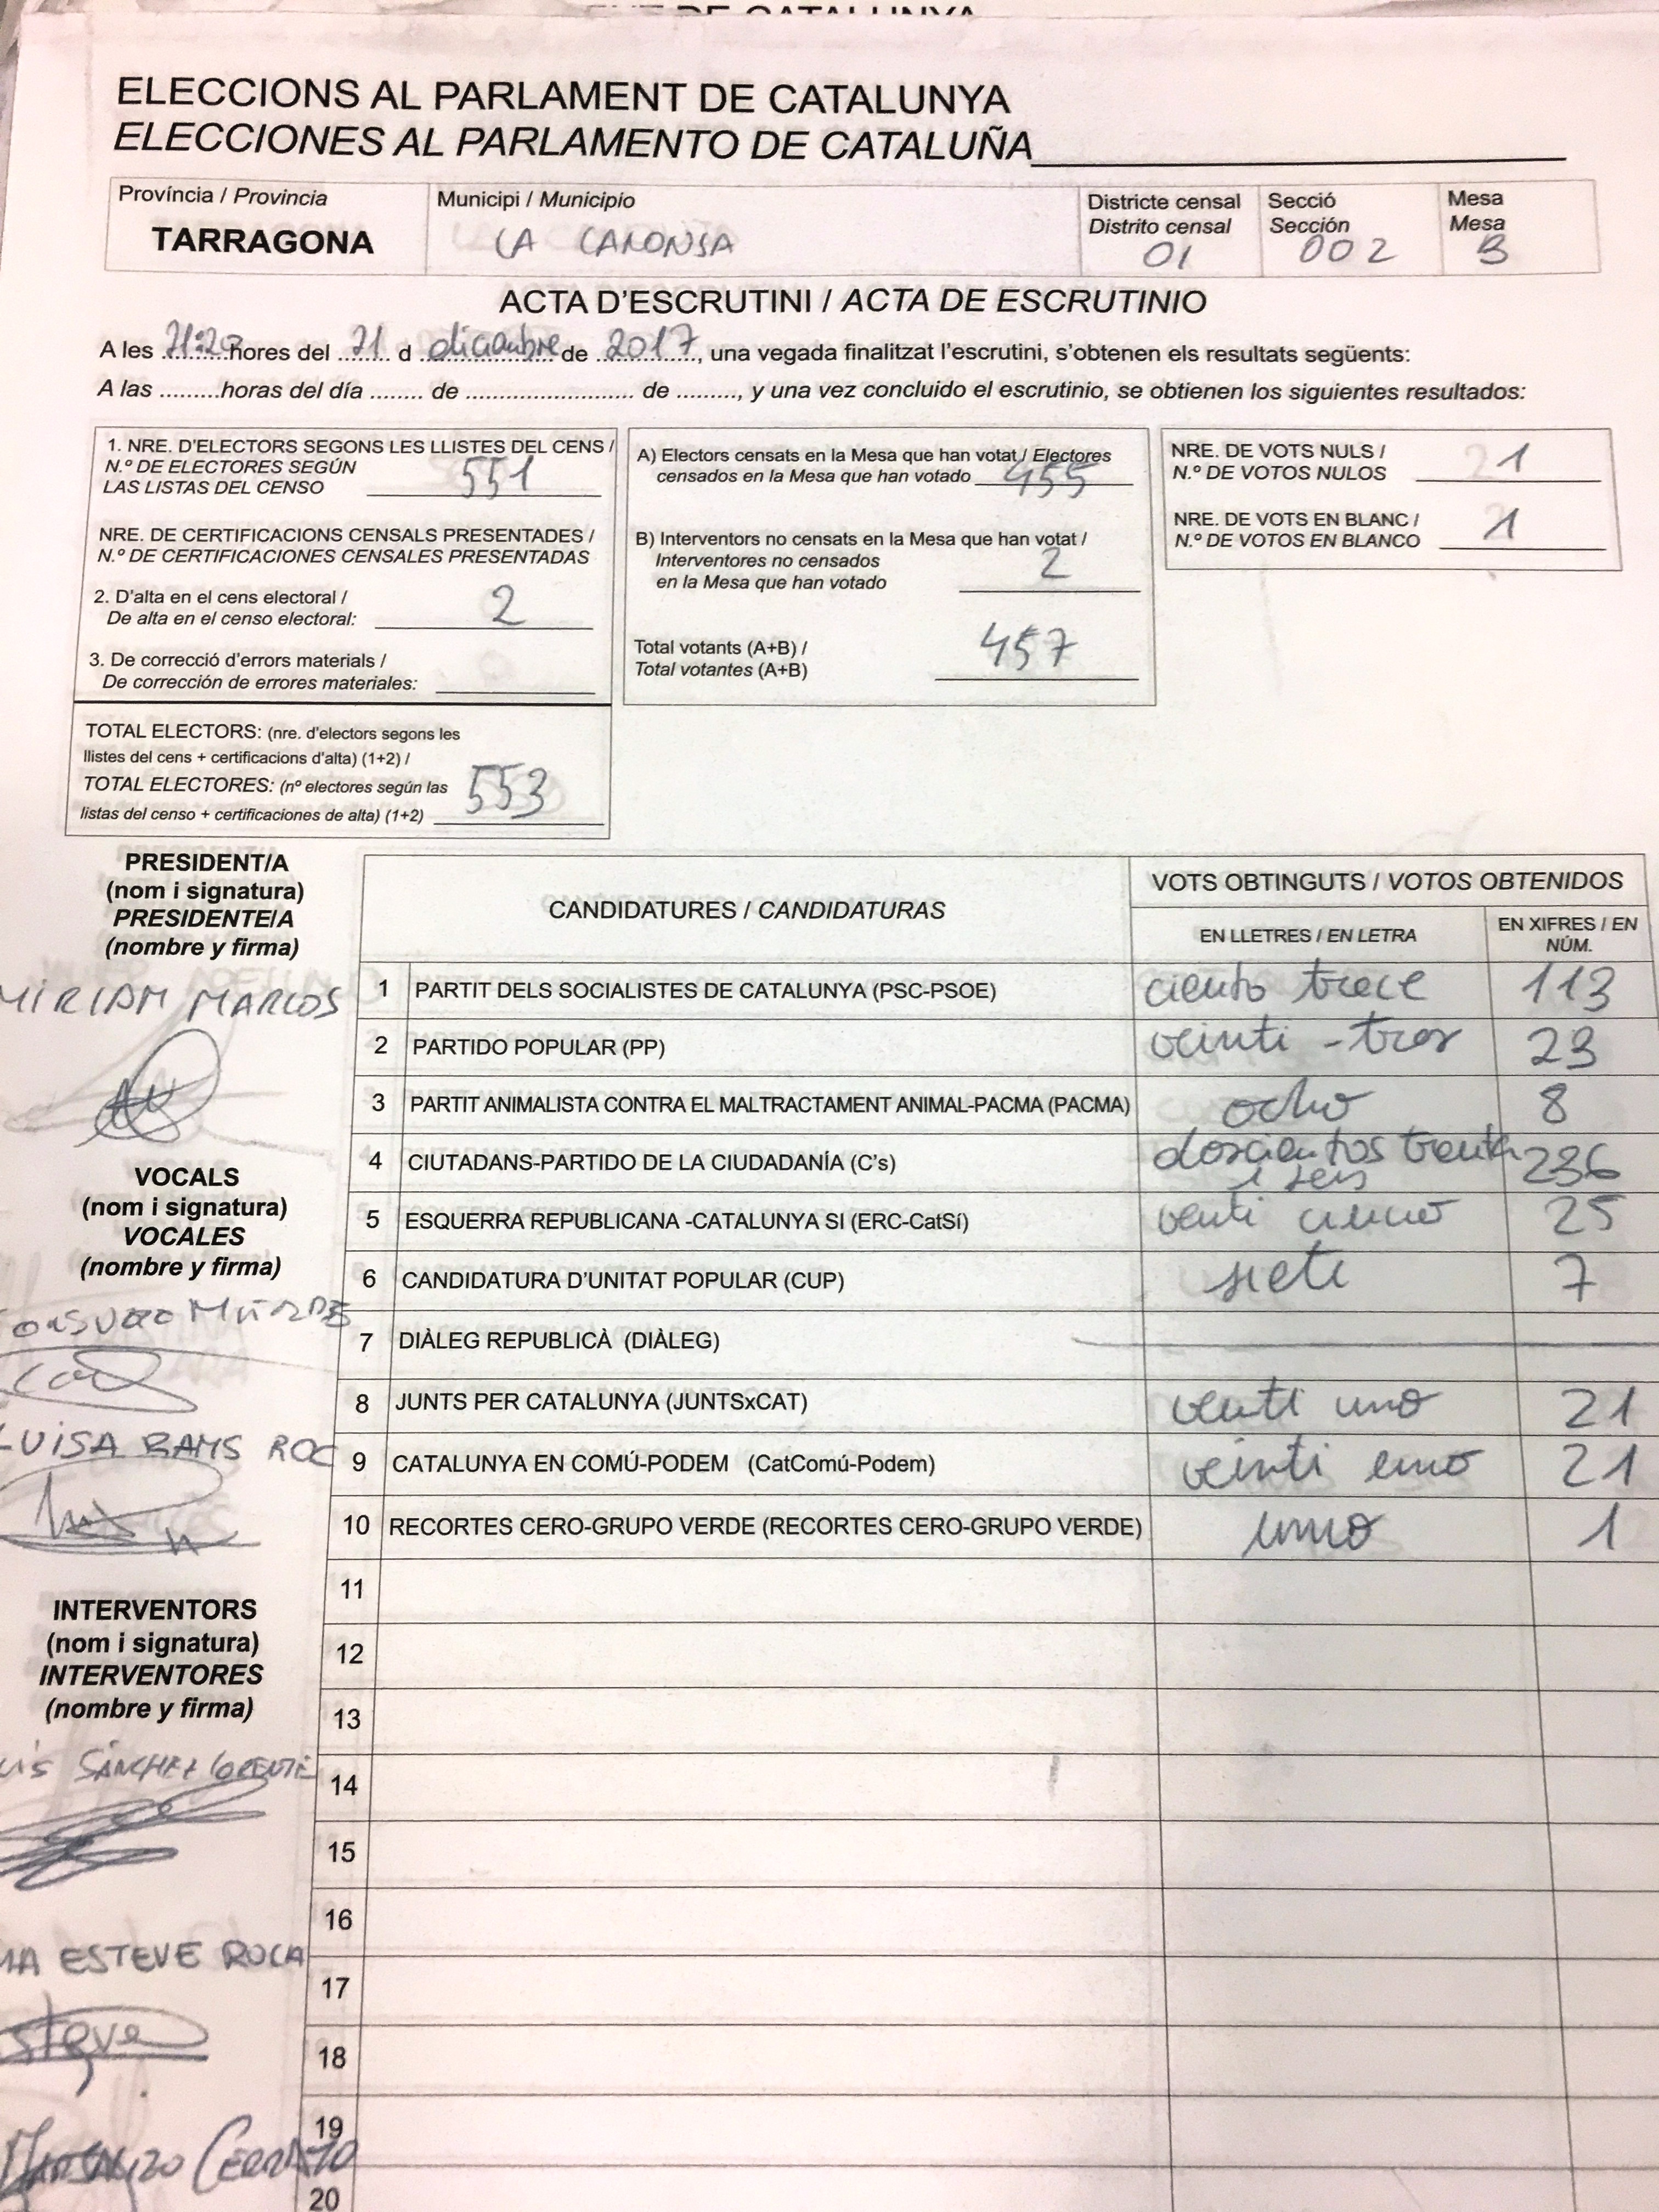 ELECCIONS AL PARLAMENT DE CATALUNYA
ELECCIONES AL PARLAMENTO DE CATALUÑA
Província / Provincia
TARRAGONA
Municipi / Municipio
LA CANONJA
Districte censal
Distrito censal
01
Secció
Sección
002
Mesa
Mesa
B
ACTA D'ESCRUTINI / ACTA DE ESCRUTINIO
A les 21:20 hores del 21 d diciembre de 2017, una vegada finalitzat l'escrutini, s'obtenen els resultats següents:
A las .........horas del día ........ de ......................... de ........., y una vez concluido el escrutinio, se obtienen los siguientes resultados:
1. NRE. D'ELECTORS SEGONS LES LLISTES DEL CENS /
N.º DE ELECTORES SEGÚN
LAS LISTAS DEL CENSO 551
NRE. DE CERTIFICACIONS CENSALS PRESENTADES /
N.º DE CERTIFICACIONES CENSALES PRESENTADAS
2. D'alta en el cens electoral /
De alta en el censo electoral: 2
3. De correcció d'errors materials /
De corrección de errores materiales:
TOTAL ELECTORS: (nre. d'electors segons les
llistes del cens + certificacions d'alta) (1+2) /
TOTAL ELECTORES: (nº electores según las
listas del censo + certificaciones de alta) (1+2) 553
A) Electors censats en la Mesa que han votat / Electores
censados en la Mesa que han votado 455
B) Interventors no censats en la Mesa que han votat /
Interventores no censados
en la Mesa que han votado 2
Total votants (A+B) /
Total votantes (A+B) 457
NRE. DE VOTS NULS /
N.º DE VOTOS NULOS 1
NRE. DE VOTS EN BLANC /
N.º DE VOTOS EN BLANCO 1
PRESIDENT/A
(nom i signatura)
PRESIDENTE/A
(nombre y firma)
MIRIAM MARCOS
VOCALS
(nom i signatura)
VOCALES
(nombre y firma)
LUISA RAMS ROC
INTERVENTORS
(nom i signatura)
INTERVENTORES
(nombre y firma)
SÁNCHEZ LORENTE
ESTEVE ROCA
CANDIDATURES / CANDIDATURAS
VOTS OBTINGUTS / VOTOS OBTENIDOS
EN LLETRES / EN LETRA
EN XIFRES / EN
NÚM.
1 PARTIT DELS SOCIALISTES DE CATALUNYA (PSC-PSOE) ciento trece 113
2 PARTIDO POPULAR (PP) veinti - tres 23
3 PARTIT ANIMALISTA CONTRA EL MALTRACTAMENT ANIMAL-PACMA (PACMA) ocho 8
4 CIUTADANS-PARTIDO DE LA CIUDADANÍA (C's) doscientos trenta i seis 236
5 ESQUERRA REPUBLICANA -CATALUNYA SI (ERC-CatSí) venti cinco 25
6 CANDIDATURA D'UNITAT POPULAR (CUP) siete 7
7 DIÀLEG REPUBLICÀ (DIÀLEG)
8 JUNTS PER CATALUNYA (JUNTSxCAT) venti uno 21
9 CATALUNYA EN COMÚ-PODEM (CatComú-Podem) veinti uno 21
10 RECORTES CERO-GRUPO VERDE (RECORTES CERO-GRUPO VERDE) uno 1
11
12
13
14
15
16
17
18
19
20